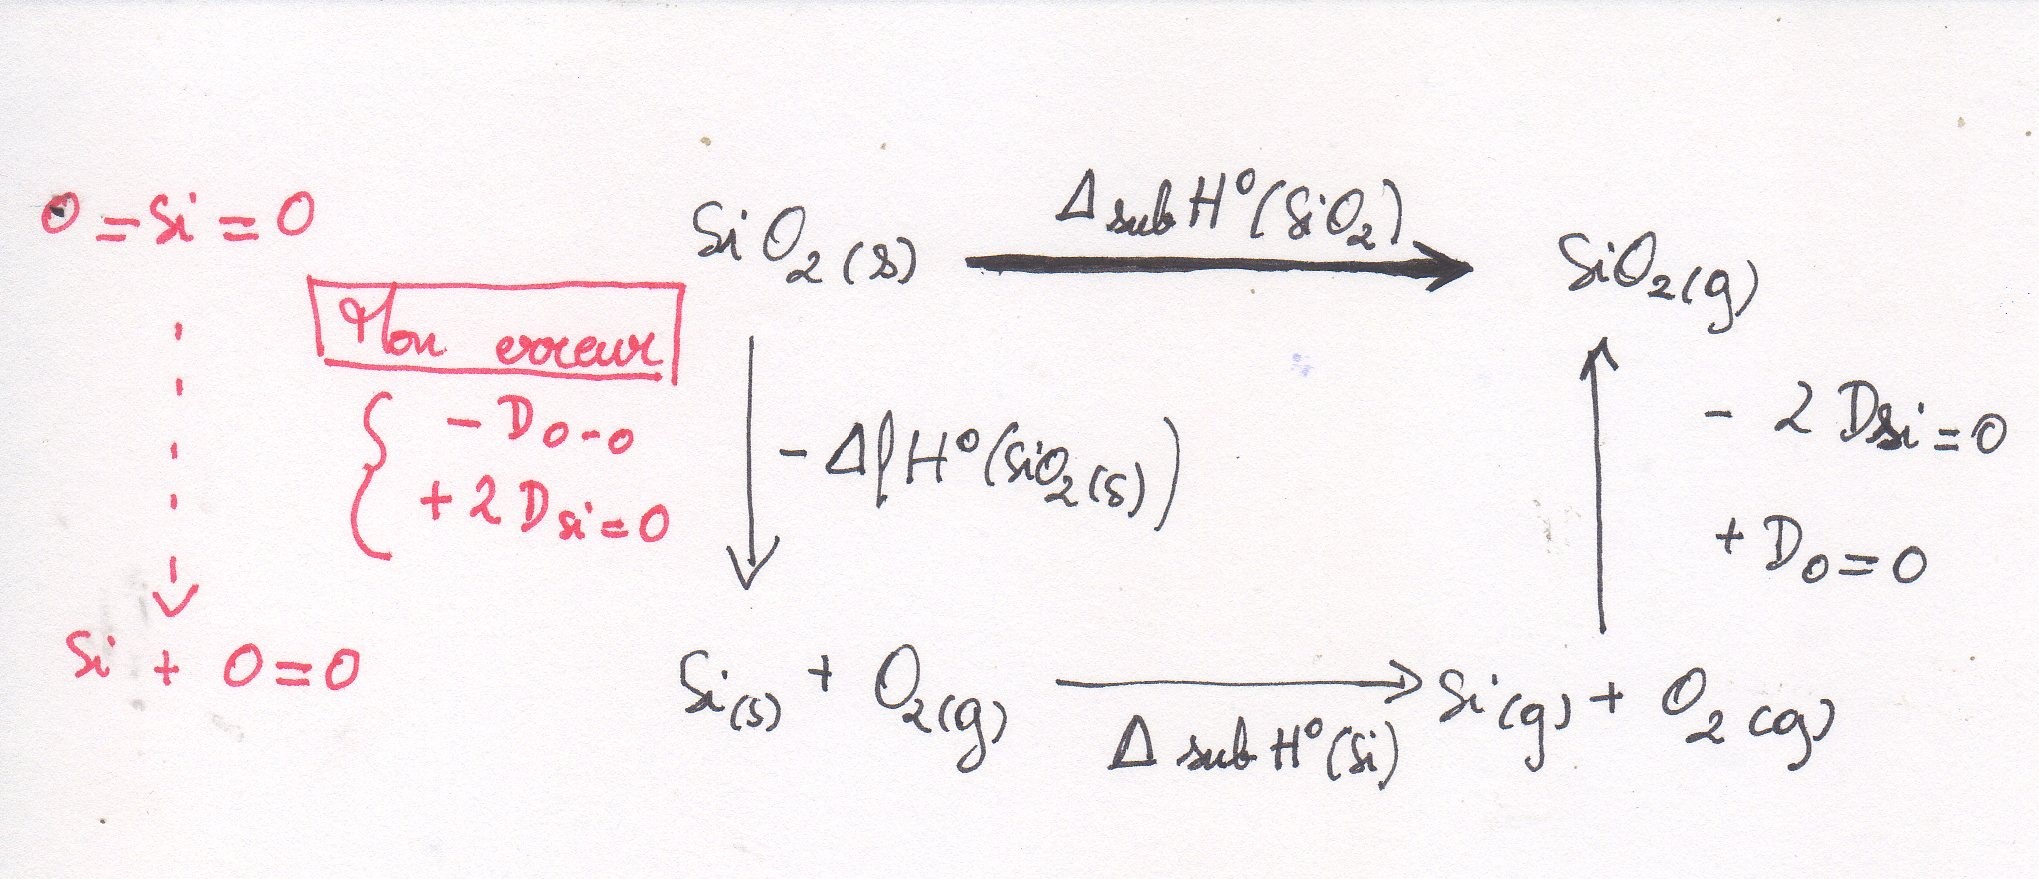 O=Si=O
Mon erreur
- D O-O
+ 2 D Si=O
Si + O=O
SiO₂(s)
Δsub H°(SiO₂)
SiO₂(g)
- Δf H°(SiO₂(s))
- 2 D Si=O
+ D O=O
Si(s) + O₂(g)
Δ sub H°(Si)
Si(g) + O₂(g)